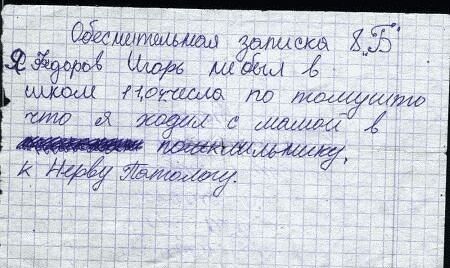 Обеснительная записка 8 "Б"
Я Федоров Игорь не был в
школ 11,04 числа по томушто
что я ходил с мамой в
к Нерву Патологу.